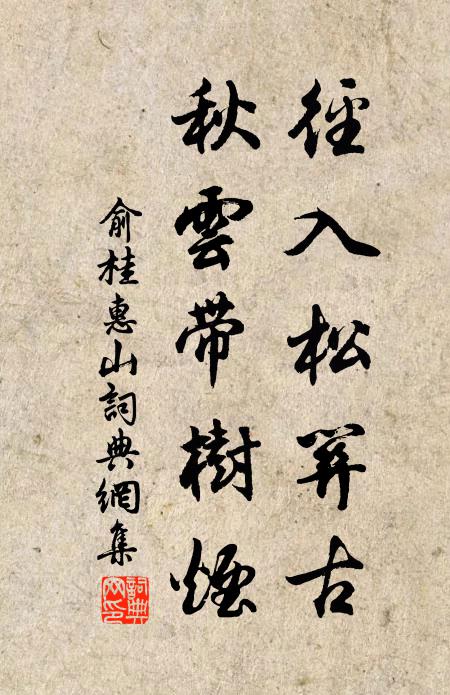 徑入松開古
秋雲帶樹煙
俞桂惠山詞典網集
詞典網印